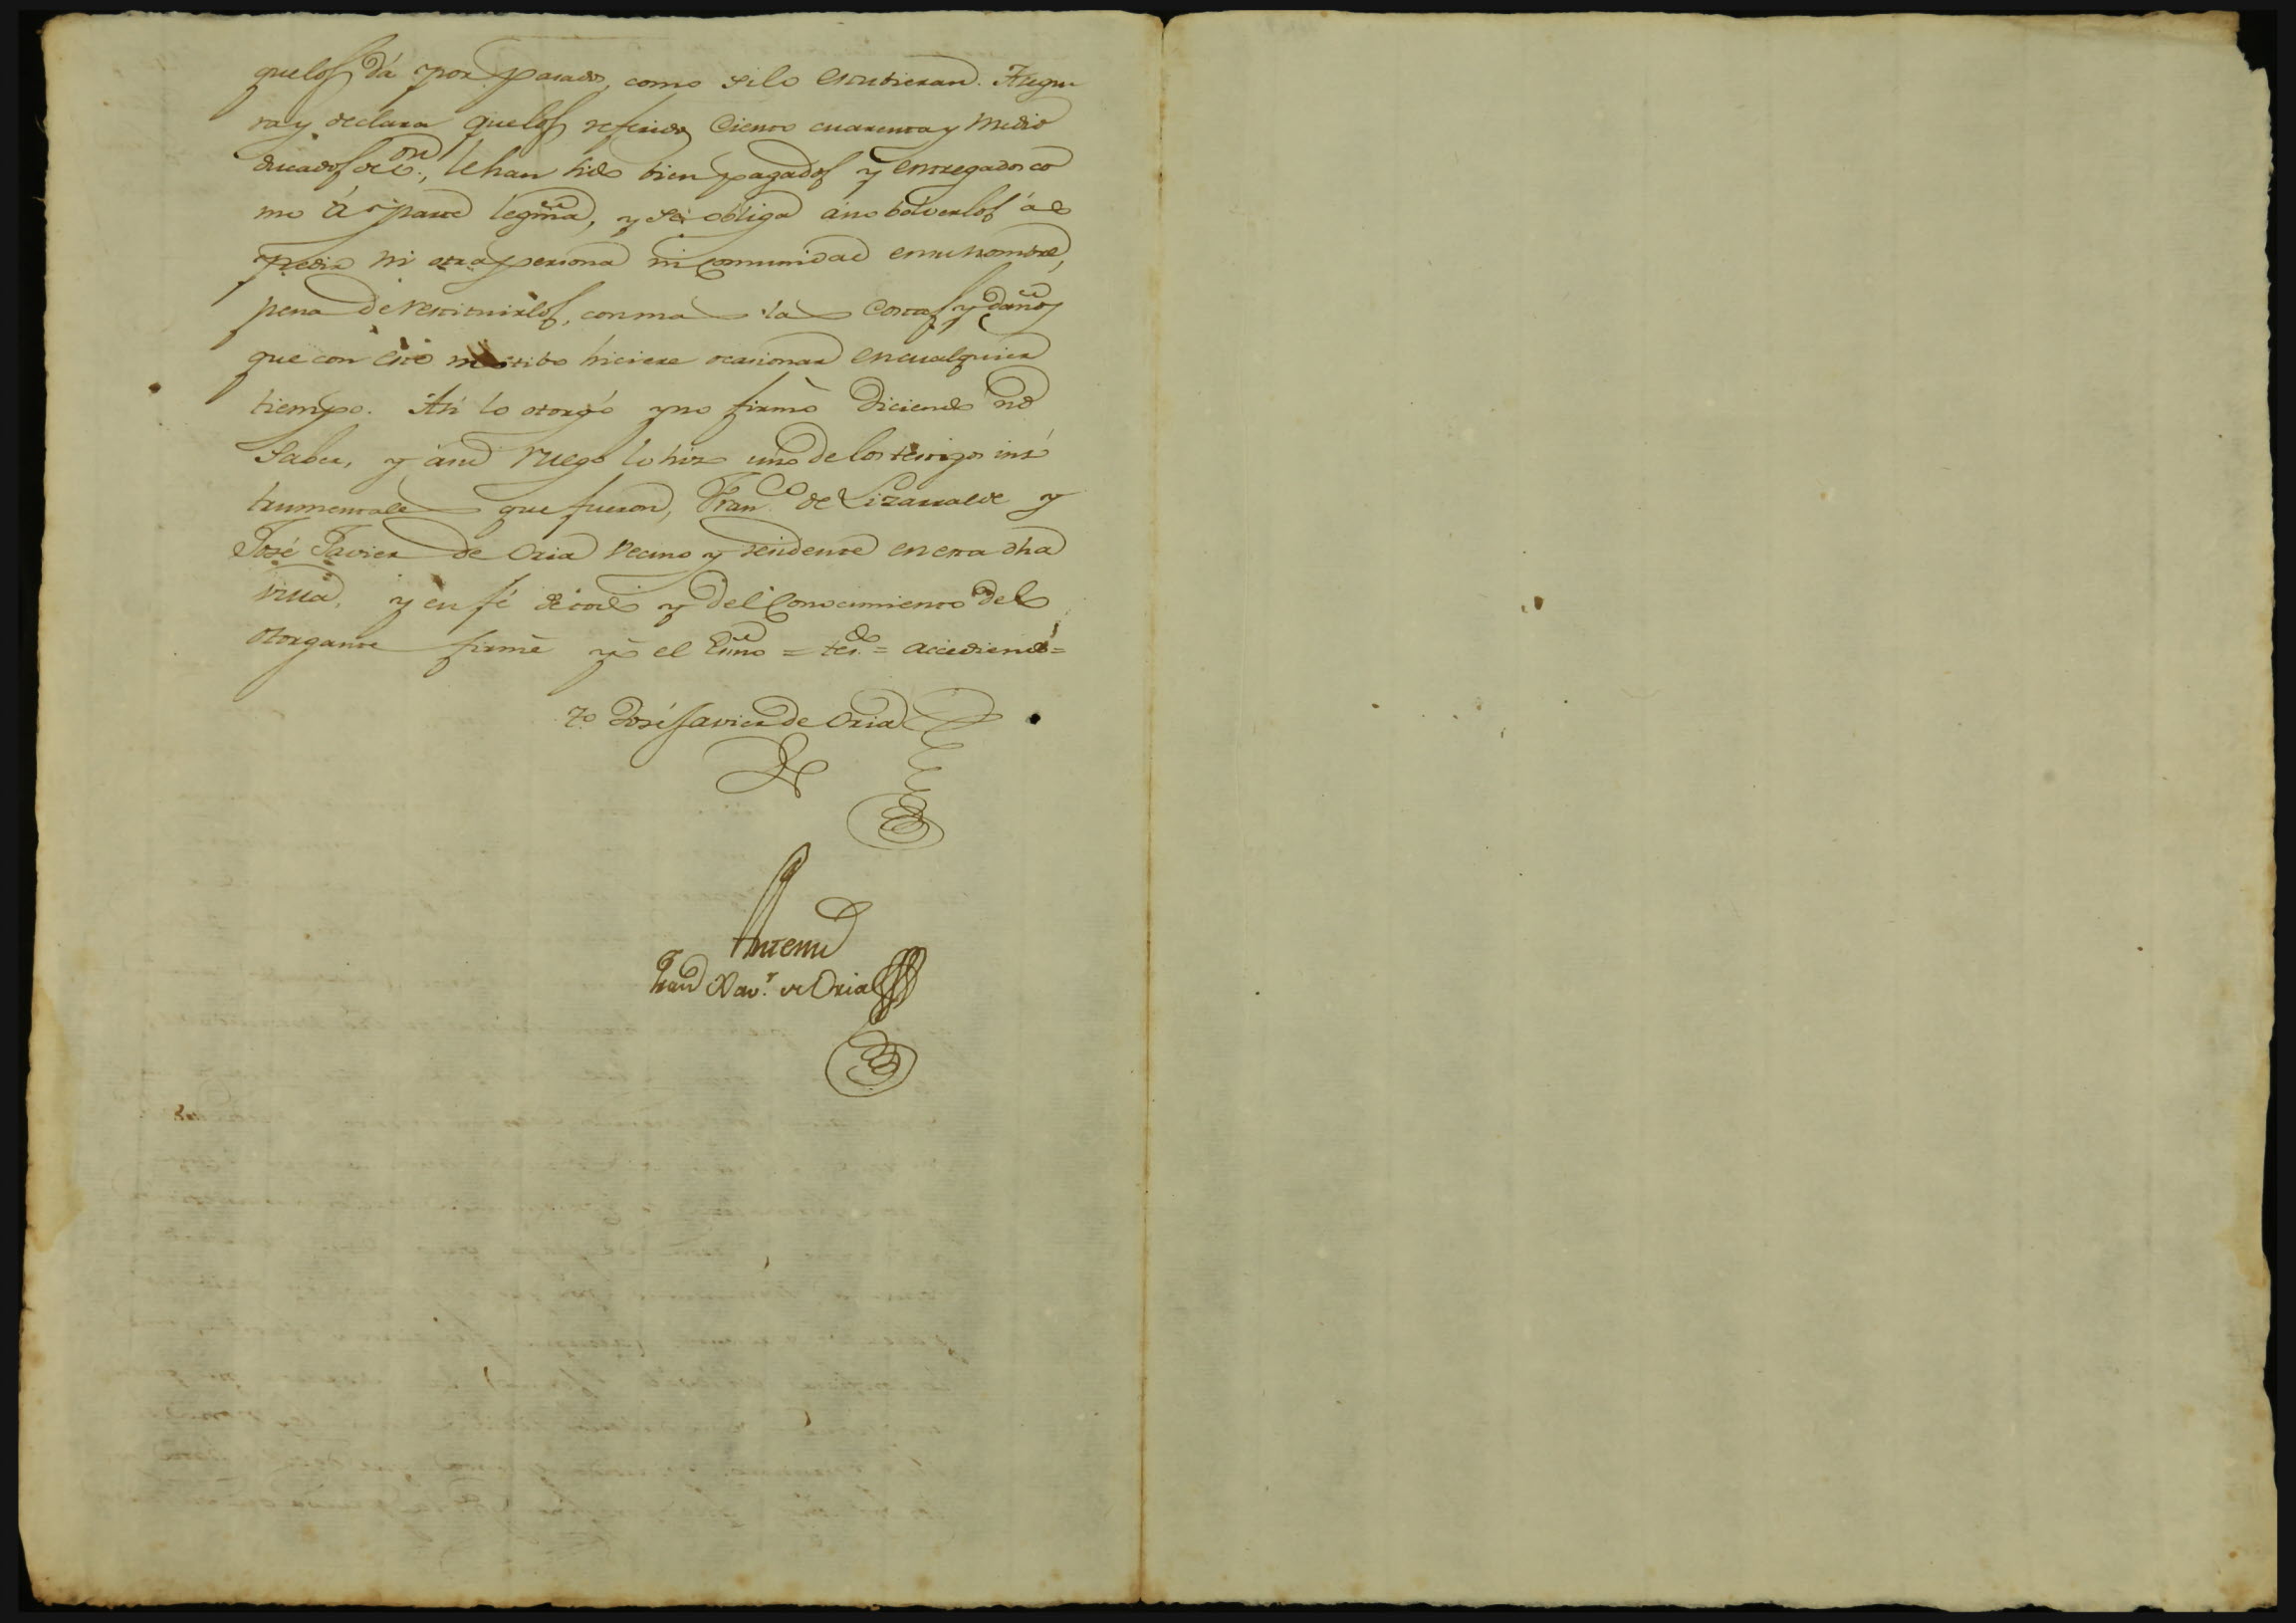 quelos dá por pasados, como silo estubieran. Asegu
ra y declara quelos referidos Ciento cuarenta y medio
ducados de on, le han sido bien pagados y entregados co
mo á parte legma, y se obliga áno bolverlos á
pedir ni otra persona ni comunidad ensu nombre,
pena de restituirlos, con mas las costas y daños
que con este motibo hiciere ocasionar en cualquiera
tiempo. Asi lo otorgó y no firmó diciendo no
saber, y ásu ruego lo hizo uno de los testigos ins
trumentales que fueron, Franco de Lizarralde y
José Javier de Oria vecino y residente en esta dha
villa, y en fé de todo y del conocimiento del
otorgante firmé yo el Esno = tdo = accediendo =
to José Javier de Oria
Antemi
Fran Xavr de Oria